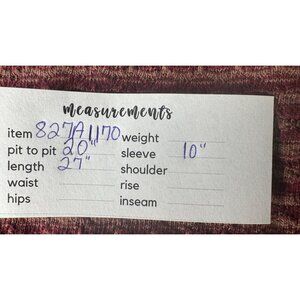 measurements
item 827A1170 weight
pit to pit 20" sleeve 10"
length 27" shoulder
waist rise
hips inseam